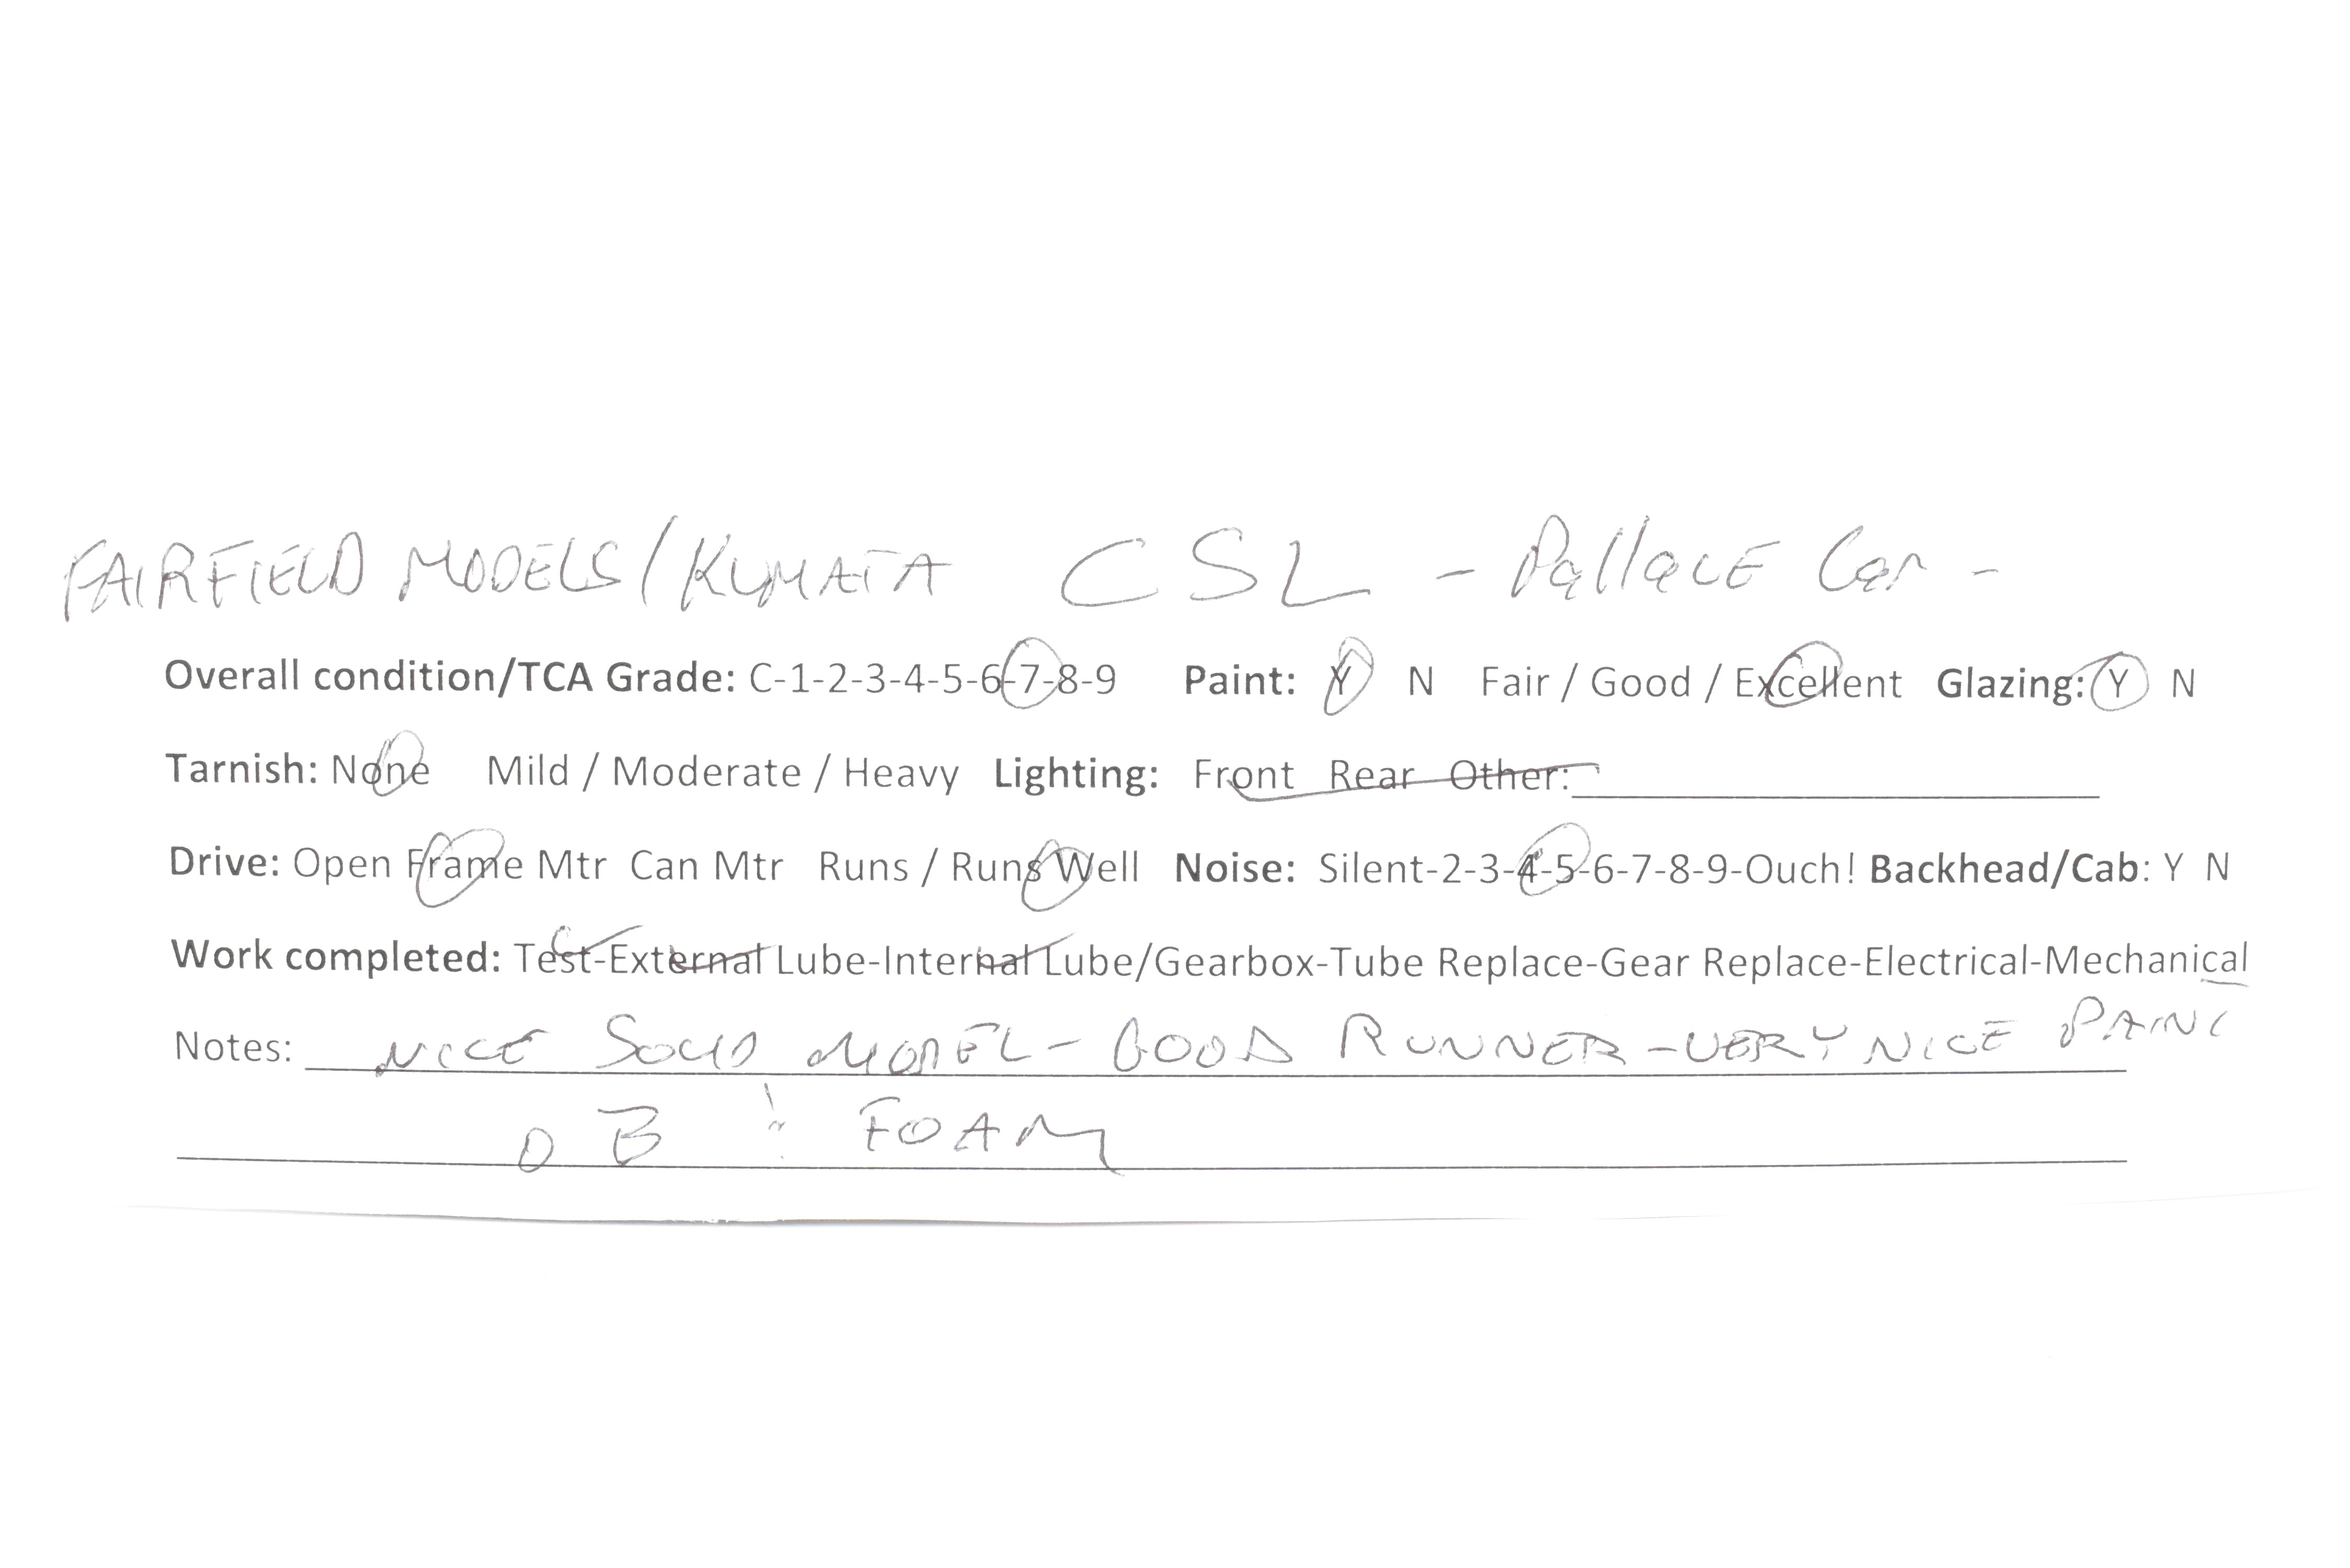 FAIRFIELD MODELS/KUMATA CSL - PallaCE Car -
Overall condition/TCA Grade: C-1-2-3-4-5-6-7-8-9 Paint: Y N Fair / Good / Excellent Glazing: Y N
Tarnish: None Mild / Moderate / Heavy Lighting: Front Rear Other:
Drive: Open Frame Mtr Can Mtr Runs / Runs Well Noise: Silent-2-3-4-5-6-7-8-9-Ouch! Backhead/Cab: Y N
Work completed: Test-External Lube-Internal Lube/Gearbox-Tube Replace-Gear Replace-Electrical-Mechanical
Notes: NICE SOLID MODEL - GOOD RUNNER - VERY NICE PAINT
OB : FOAM